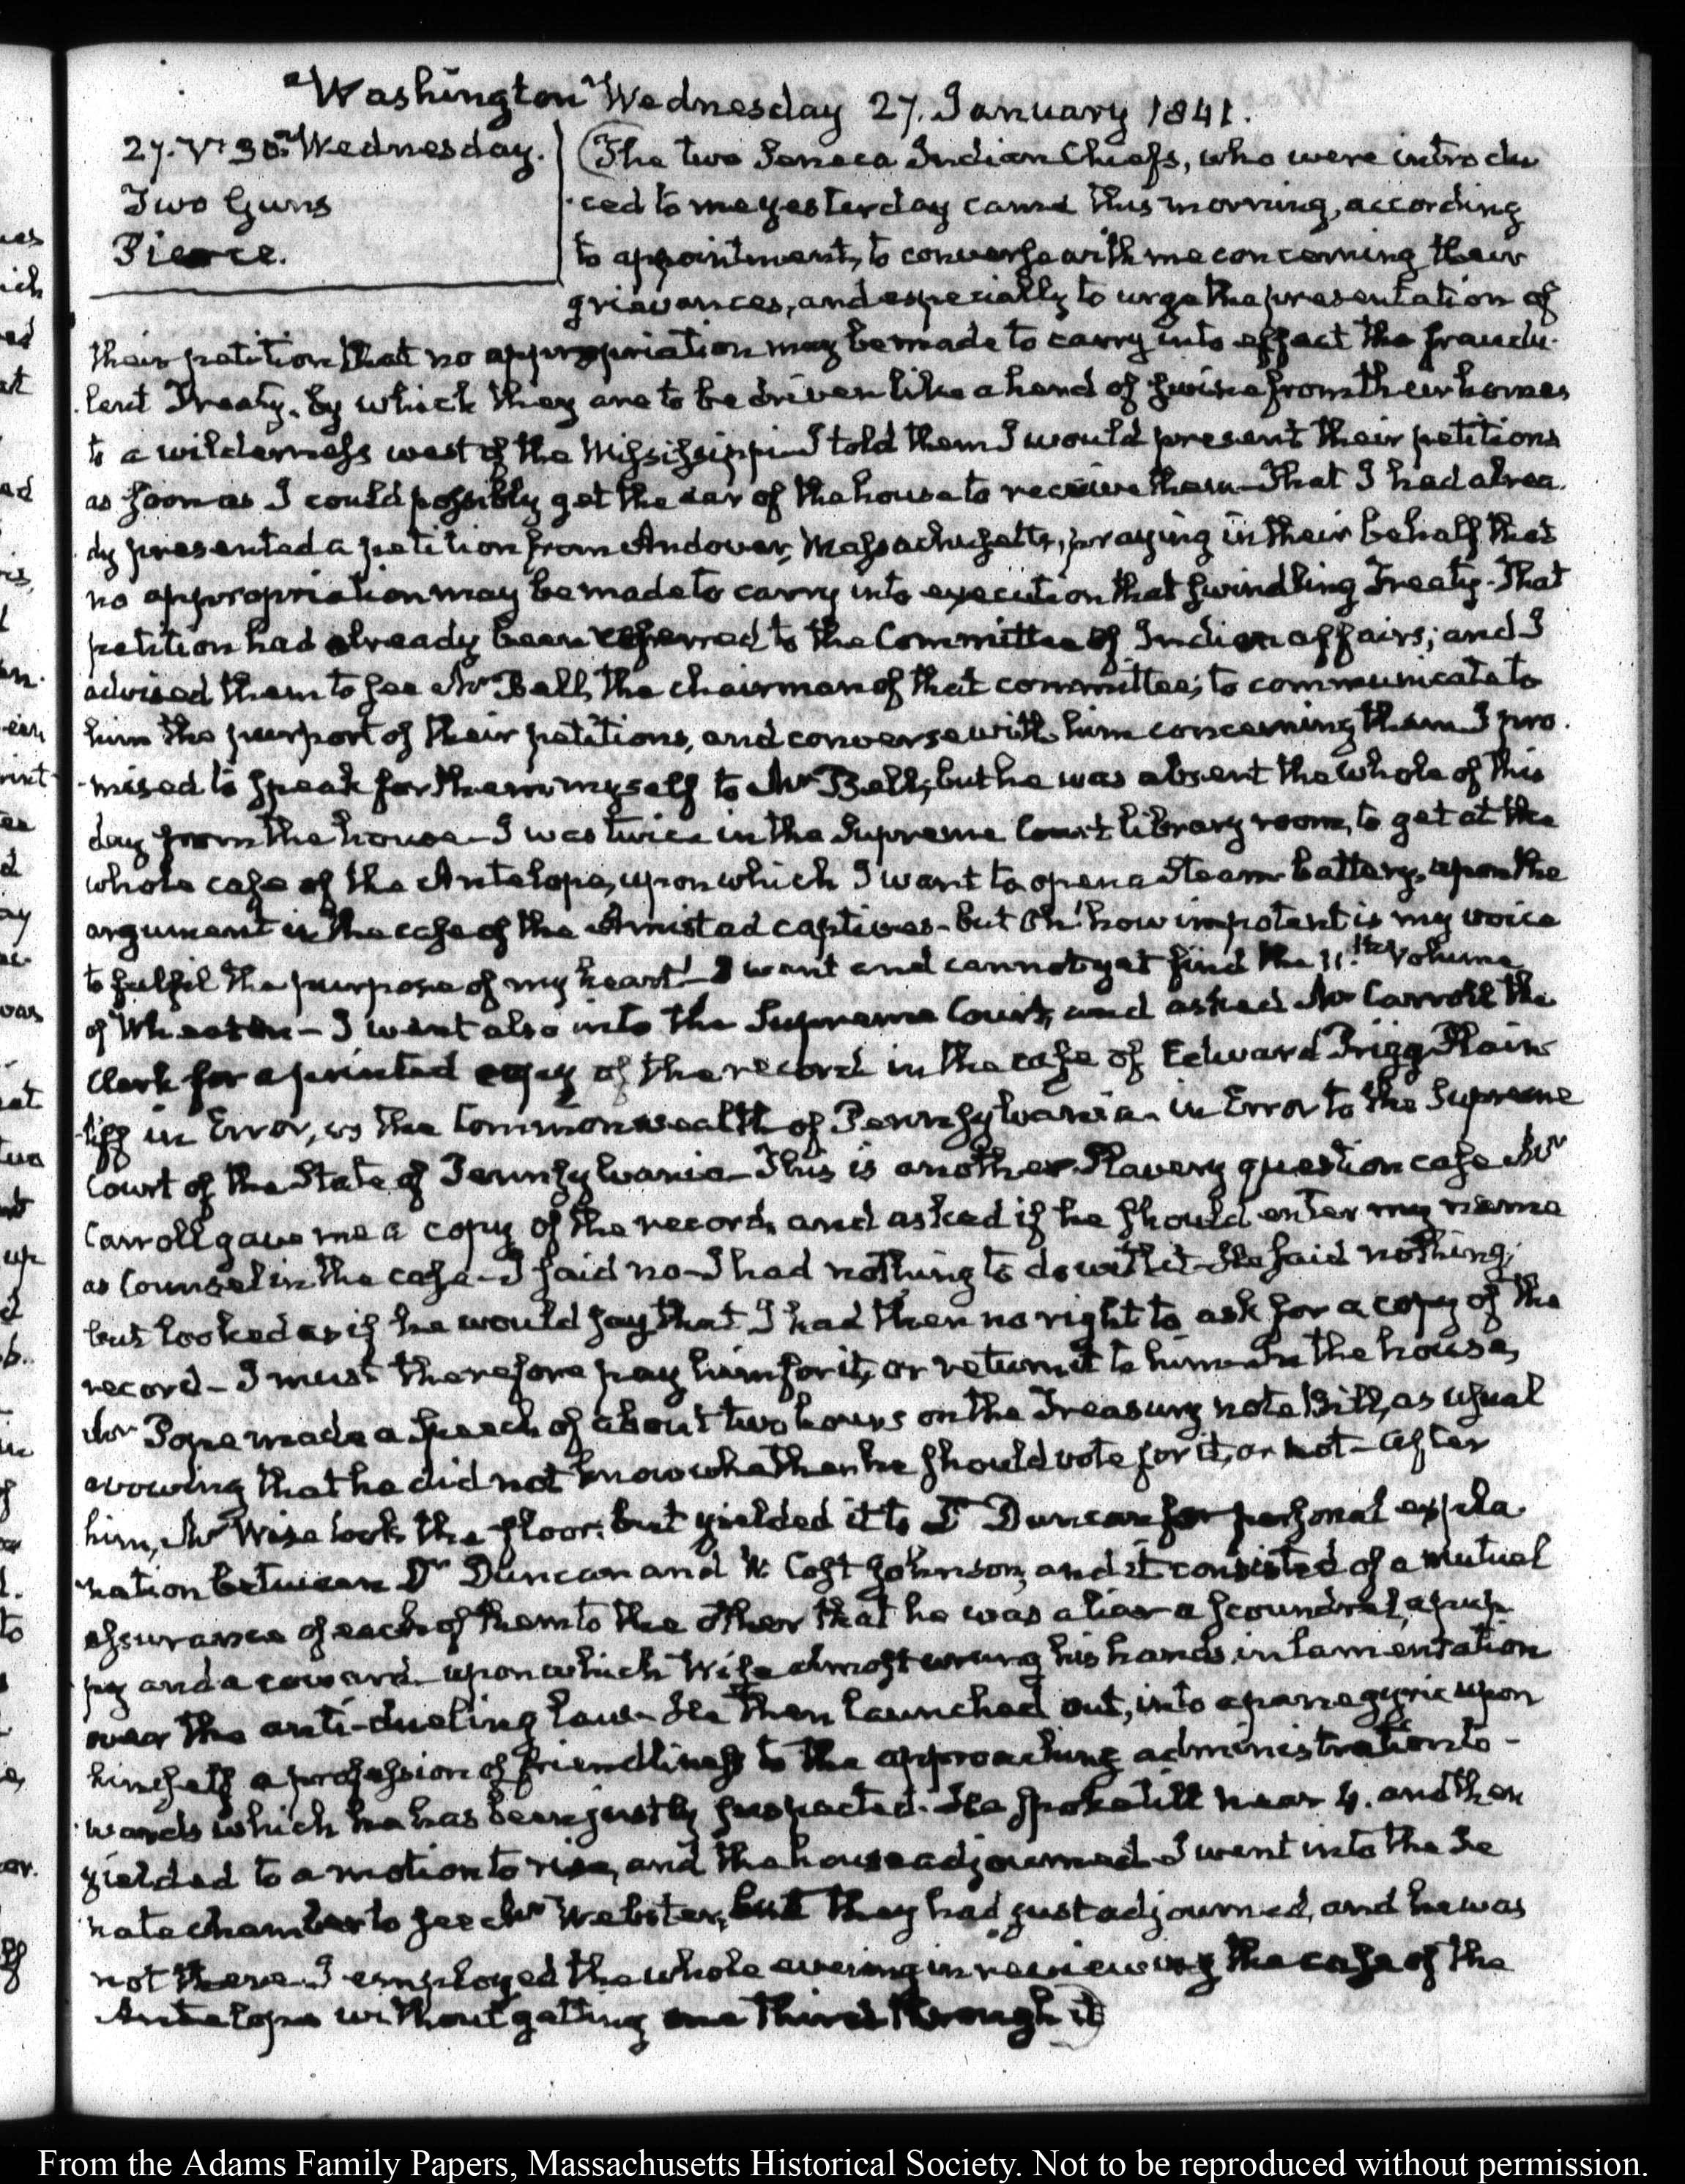 Washington Wednesday 27. January 1841.
27. V. 30. Wednesday.
Two Guns
Pierce.
The two Seneca Indian Chiefs, who were introdu
ced to me yesterday came this morning, according
to appointment, to converse with me concerning their
grievances, and especially to urge the presentation of
their petition that no appropriation may be made to carry into effect the fraudu-
lent Treaty, by which they are to be driven like a herd of swine from their homes
to a wilderness west of the Mississippi— I told them I would present their petitions
as soon as I could possibly get the ear of the house to receive them— That I had alrea-
dy presented a petition from Andover, Massachusetts, praying in their behalf that
no appropriation may be made to carry into execution that swindling Treaty— That
petition had already been referred to the Committee of Indian affairs; and I
advised them to see Mr Bell, the chairman of that committee; to communicate to
him the purport of their petitions, and converse with him concerning them. I pro-
-mised to speak for them myself to Mr Bell; but he was absent the whole of this
day from the house— I was twice in the Supreme Court library room, to get at the
whole case of the Antelope, upon which I want to open a Steam battery, upon the
argument in the case of the Amistad captives— but Oh! how impotent is my voice
to fulfil the purpose of my heart!— I want and cannot yet find the 11.th Volume
of Wheaton— I went also into the Supreme Court, and asked Mr Carroll the
Clerk for a printed copy of the record in the case of Edward Prigg Plain-
-tiff in Error, vs the Commonwealth of Pennsylvania— in Error to the Supreme
Court of the State of Pennsylvania— This is another Slavery question case Mr
Carroll gave me a copy of the record, and asked if he should enter my name
as Counsel in the case— I said no— I had nothing to do with it— He said nothing;
but looked as if he would say that I had then no right to ask for a copy of the
record— I must therefore pay him for it, or return it to him— In the house,
Mr Pope made a Speech of about two hours on the Treasury note Bill, as usual
avowing that he did not know whether he should vote for it, or not— after
him, Mr Wise took the floor; but yielded it to Dr Duncan for personal expla-
nation between Dr Duncan and W. Cost Johnson, and it consisted of a mutual
assurance of each of them to the other that he was a liar a scoundrel, a pup-
py and a coward— upon which Wise almost wrung his hands in lamentation
over the anti-dueling law— He then launched out, into a panegyric upon
himself a profession of friendliness to the approaching administration to-
-wards which he has been justly suspected. He spoke till near 4. and then
yielded to a motion to rise, and the house adjourned— I went into the Se
nate chamber to see Mr Webster, but they had just adjourned, and he was
not there— I employed the whole evening in reviewing the case of the
Antelope without getting one third through it